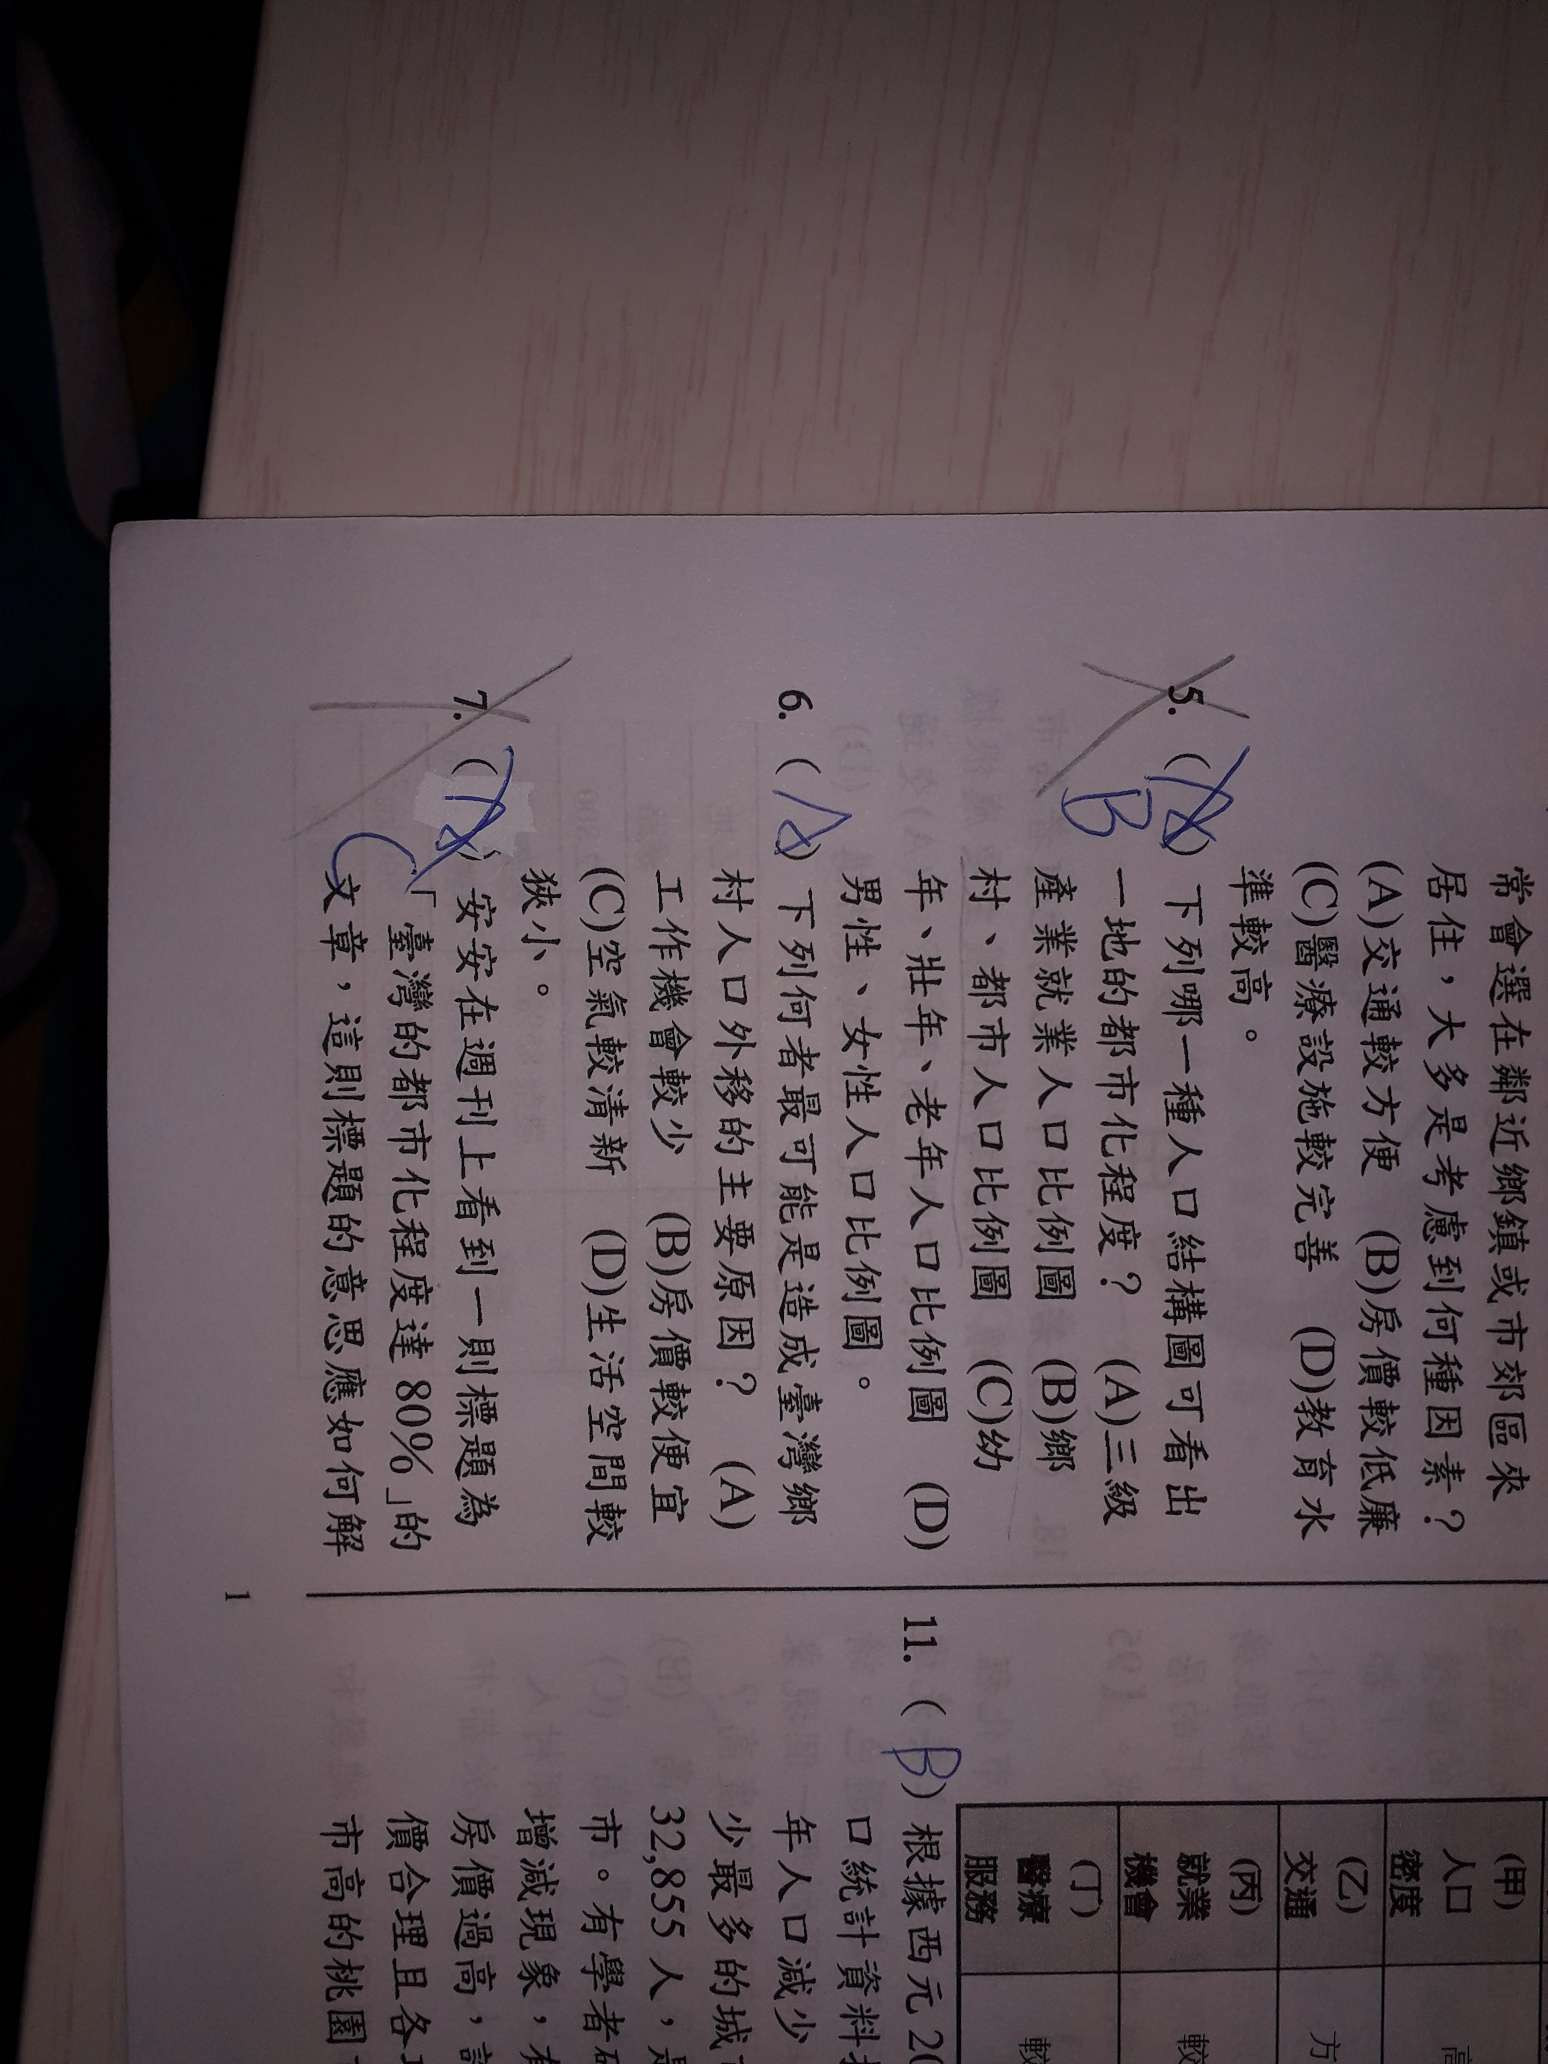 常會選在鄰近鄉鎮或市郊區來
居住，大多是考慮到何種因素？
(A)交通較方便　(B)房價較低廉
(C)醫療設施較完善　(D)教育水
準較高。
5.（　）下列哪一種人口結構圖可看出
B
一地的都市化程度？　(A)三級
產業就業人口比例圖　(B)鄉
村、都市人口比例圖　(C)幼
年、壯年、老年人口比例圖　(D)
男性、女性人口比例圖。
6.（A）下列何者最可能是造成臺灣鄉
村人口外移的主要原因？　(A)
工作機會較少　(B)房價較便宜
(C)空氣較清新　(D)生活空間較
狹小。
7.（　）安安在週刊上看到一則標題為
C
「臺灣的都市化程度達 80%」的
文章，這則標題的意思應如何解
1
(甲)
人口
密度
高
(乙)
交通
方
(丙)
就業
機會
較
(丁)
醫療
服務
較
11.（B）根據西元 20
口統計資料
年人口減少
少最多的城
32,855 人，
市。有學者
增減現象，
房價過高，
價合理且各
市高的桃園